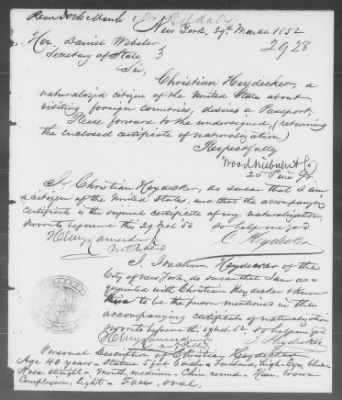 New York, 29th March 1852
2928
Hon. Daniel Webster
Secretary of State
Sir,
Christian Heydecker, a
naturalized citizen of the United States about
visiting foreign countries, desires a Passport,
Please forward to the undersigned, (returning
the enclosed certificate of naturalization)
Respectfully
25 Pine St.
I, Christian Heydecker, do swear that I am
a citizen of the United States, and that the accompanying
certificate is the original certificate of my naturalization
Sworn to before me this 29 Mch 52 so help me God
C Heydecker
I, Joachim Heydecker of the
City of New York, do swear that I am ac-
quainted with Christian Heydecker & know
him to be the person mentioned in the
accompanying certificate of naturalization
Sworn to before me this 29 Mch 52. So help me God
J. Heydecker
Personal Description of Christian Heydecker
Age 40 years - Stature 5 feet inches - Forehead, high - Eyes, blue
Nose straight - Mouth, medium - Chin round - Hair, brown
Complexion, light - Face, oval.